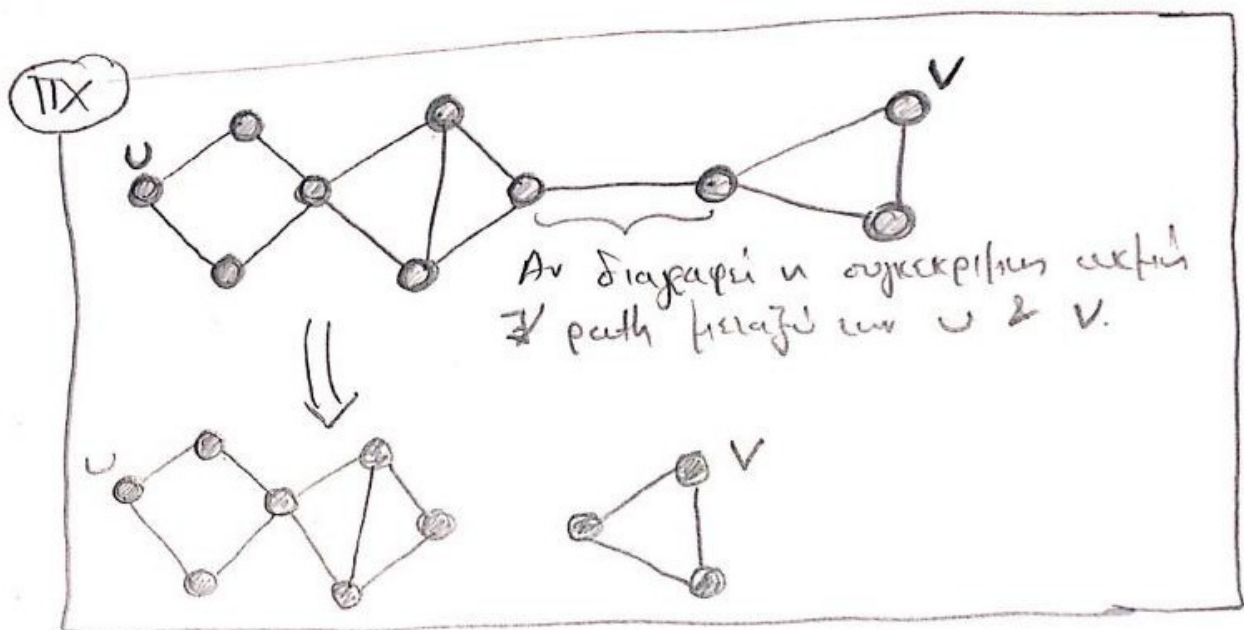 ΠΧ
V
U
Αν διαγραφεί η συγκεκριμένη ακμή
∄ path μεταξύ των u & v.
U
V